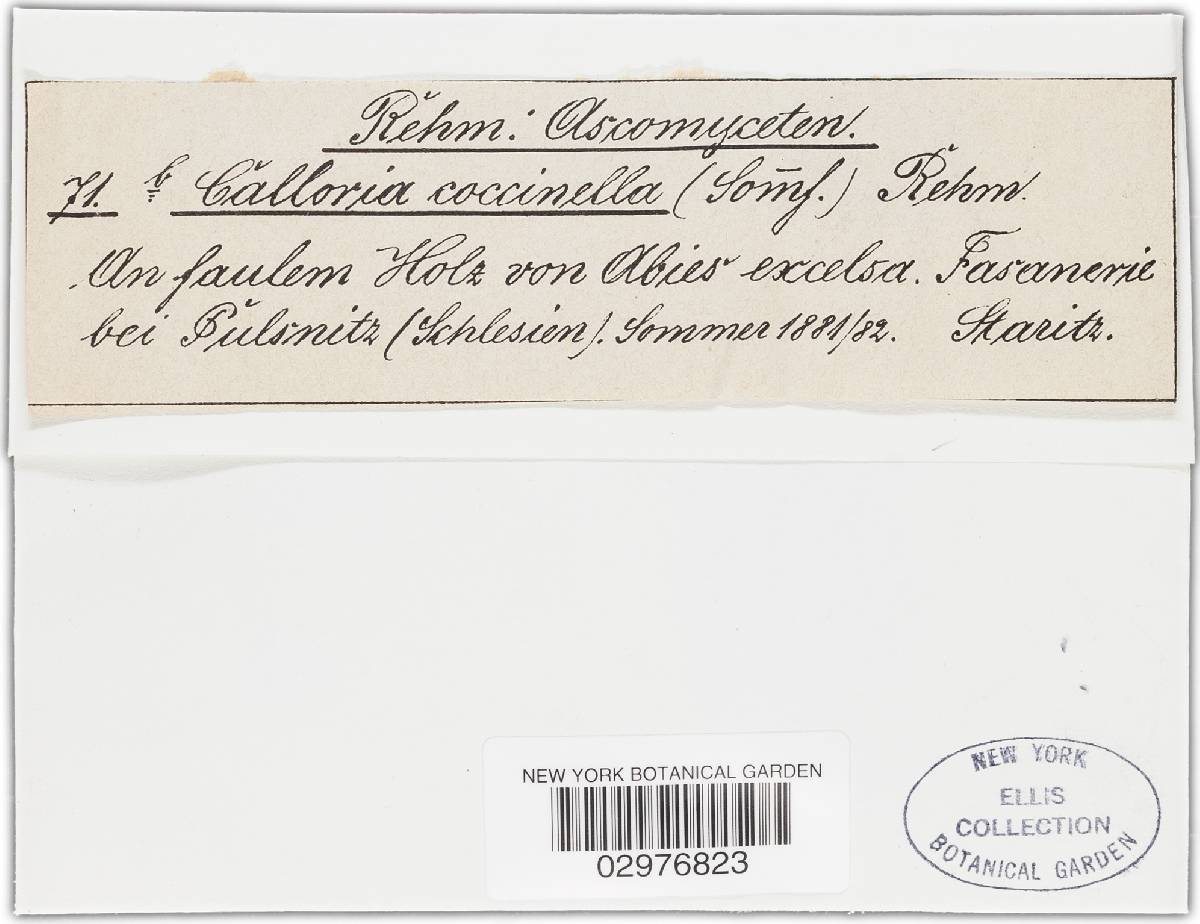 Rehm: Ascomyceten.
71. b Calloria coccinella (Som̅f.) Rehm.
An faulem Holz von Abies excelsa. Fasanerie
bei Pulsnitz (Schlesien). Sommer 1881/82. Staritz.
NEW YORK BOTANICAL GARDEN
02976823
NEW YORK
ELLIS
COLLECTION
BOTANICAL GARDEN